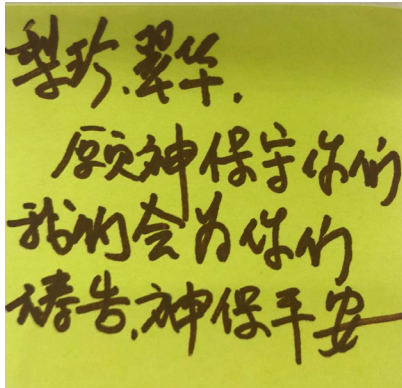 梨珍、翠华，
愿神保守你们
我们会为你们
祷告，神保平安